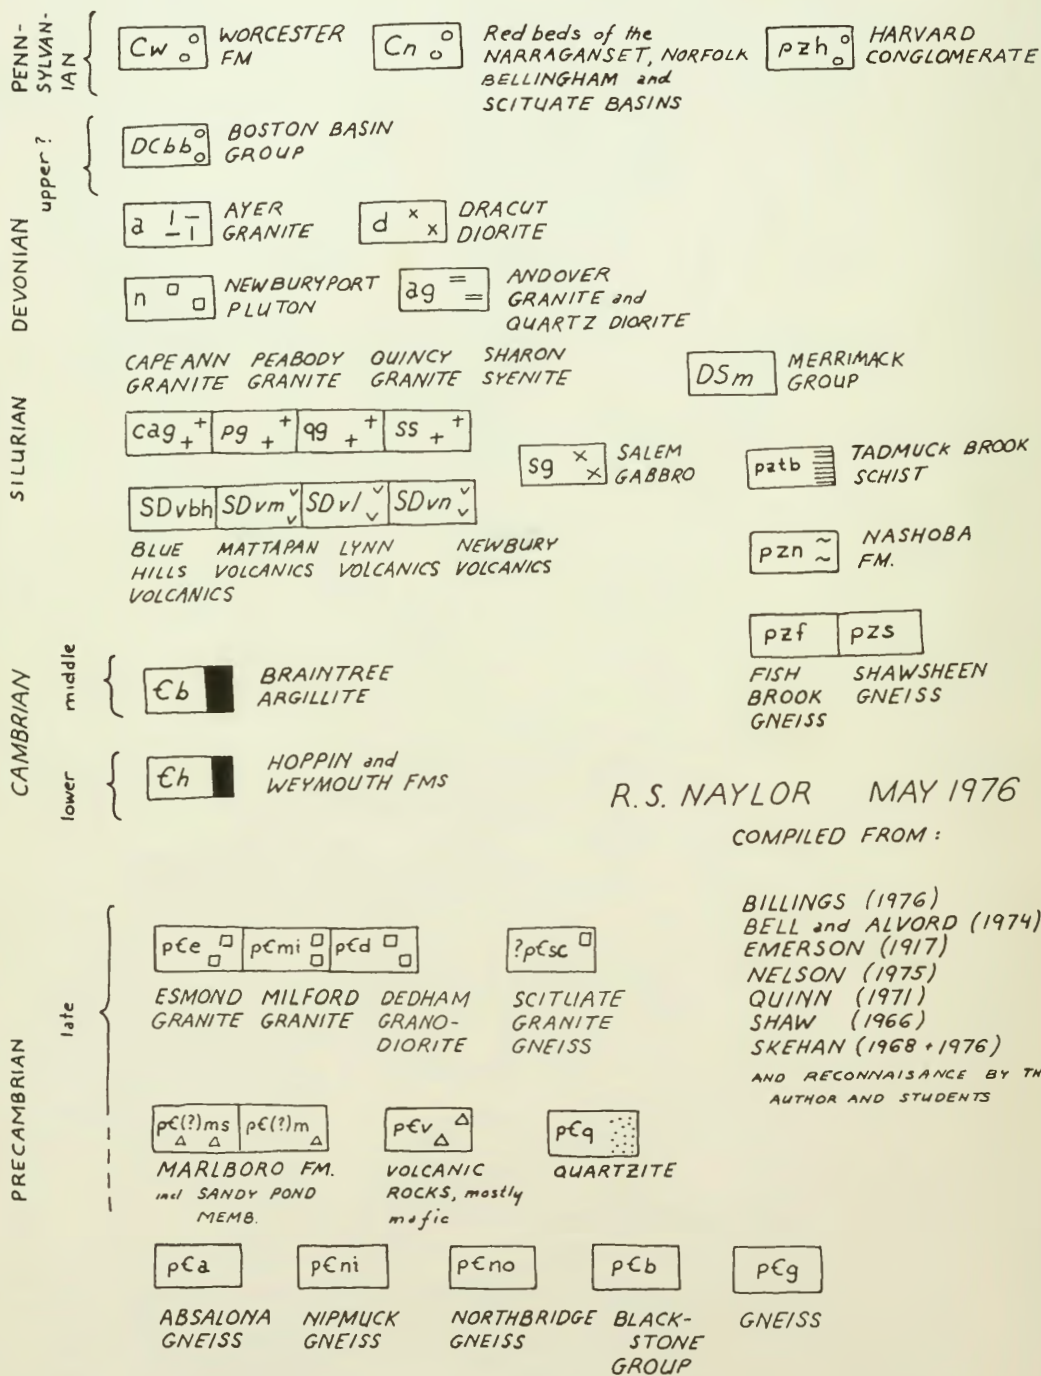 PENN-
SYLVAN-
IAN
Cw
WORCESTER
FM
Cn
Red beds of the
NARRAGANSET, NORFOLK
BELLINGHAM and
SCITUATE BASINS
pzh
HARVARD
CONGLOMERATE
upper ?
DCbb
BOSTON BASIN
GROUP
DEVONIAN
a
AYER
GRANITE
d
DRACUT
DIORITE
n
NEWBURYPORT
PLUTON
ag
ANDOVER
GRANITE and
QUARTZ DIORITE
SILURIAN
CAPE ANN
GRANITE
PEABODY
GRANITE
QUINCY
GRANITE
SHARON
SYENITE
DSm
MERRIMACK
GROUP
cag
pg
qg
ss
sg
SALEM
GABBRO
pztb
TADMUCK BROOK
SCHIST
SDvbh
SDvm
SDvl
SDvn
BLUE
HILLS
VOLCANICS
MATTAPAN
VOLCANICS
LYNN
VOLCANICS
NEWBURY
VOLCANICS
pzn
NASHOBA
FM.
pzf
pzs
FISH
BROOK
GNEISS
SHAWSHEEN
GNEISS
CAMBRIAN
middle
Єb
BRAINTREE
ARGILLITE
lower
Єh
HOPPIN and
WEYMOUTH FMS
R.S. NAYLOR MAY 1976
COMPILED FROM :
BILLINGS (1976)
BELL and ALVORD (1974)
EMERSON (1917)
NELSON (1975)
QUINN (1971)
SHAW (1966)
SKEHAN (1968 + 1976)
AND RECONNAISANCE BY TH
AUTHOR AND STUDENTS
PRECAMBRIAN
late
pЄe
pЄmi
pЄd
?pЄsc
ESMOND
GRANITE
MILFORD
GRANITE
DEDHAM
GRANO-
DIORITE
SCITUATE
GRANITE
GNEISS
pЄ(?)ms
pЄ(?)m
pЄv
pЄq
MARLBORO FM.
incl SANDY POND
MEMB.
VOLCANIC
ROCKS, mostly
mafic
QUARTZITE
pЄa
pЄni
pЄno
pЄb
pЄg
ABSALONA
GNEISS
NIPMUCK
GNEISS
NORTHBRIDGE
GNEISS
BLACK-
STONE
GROUP
GNEISS